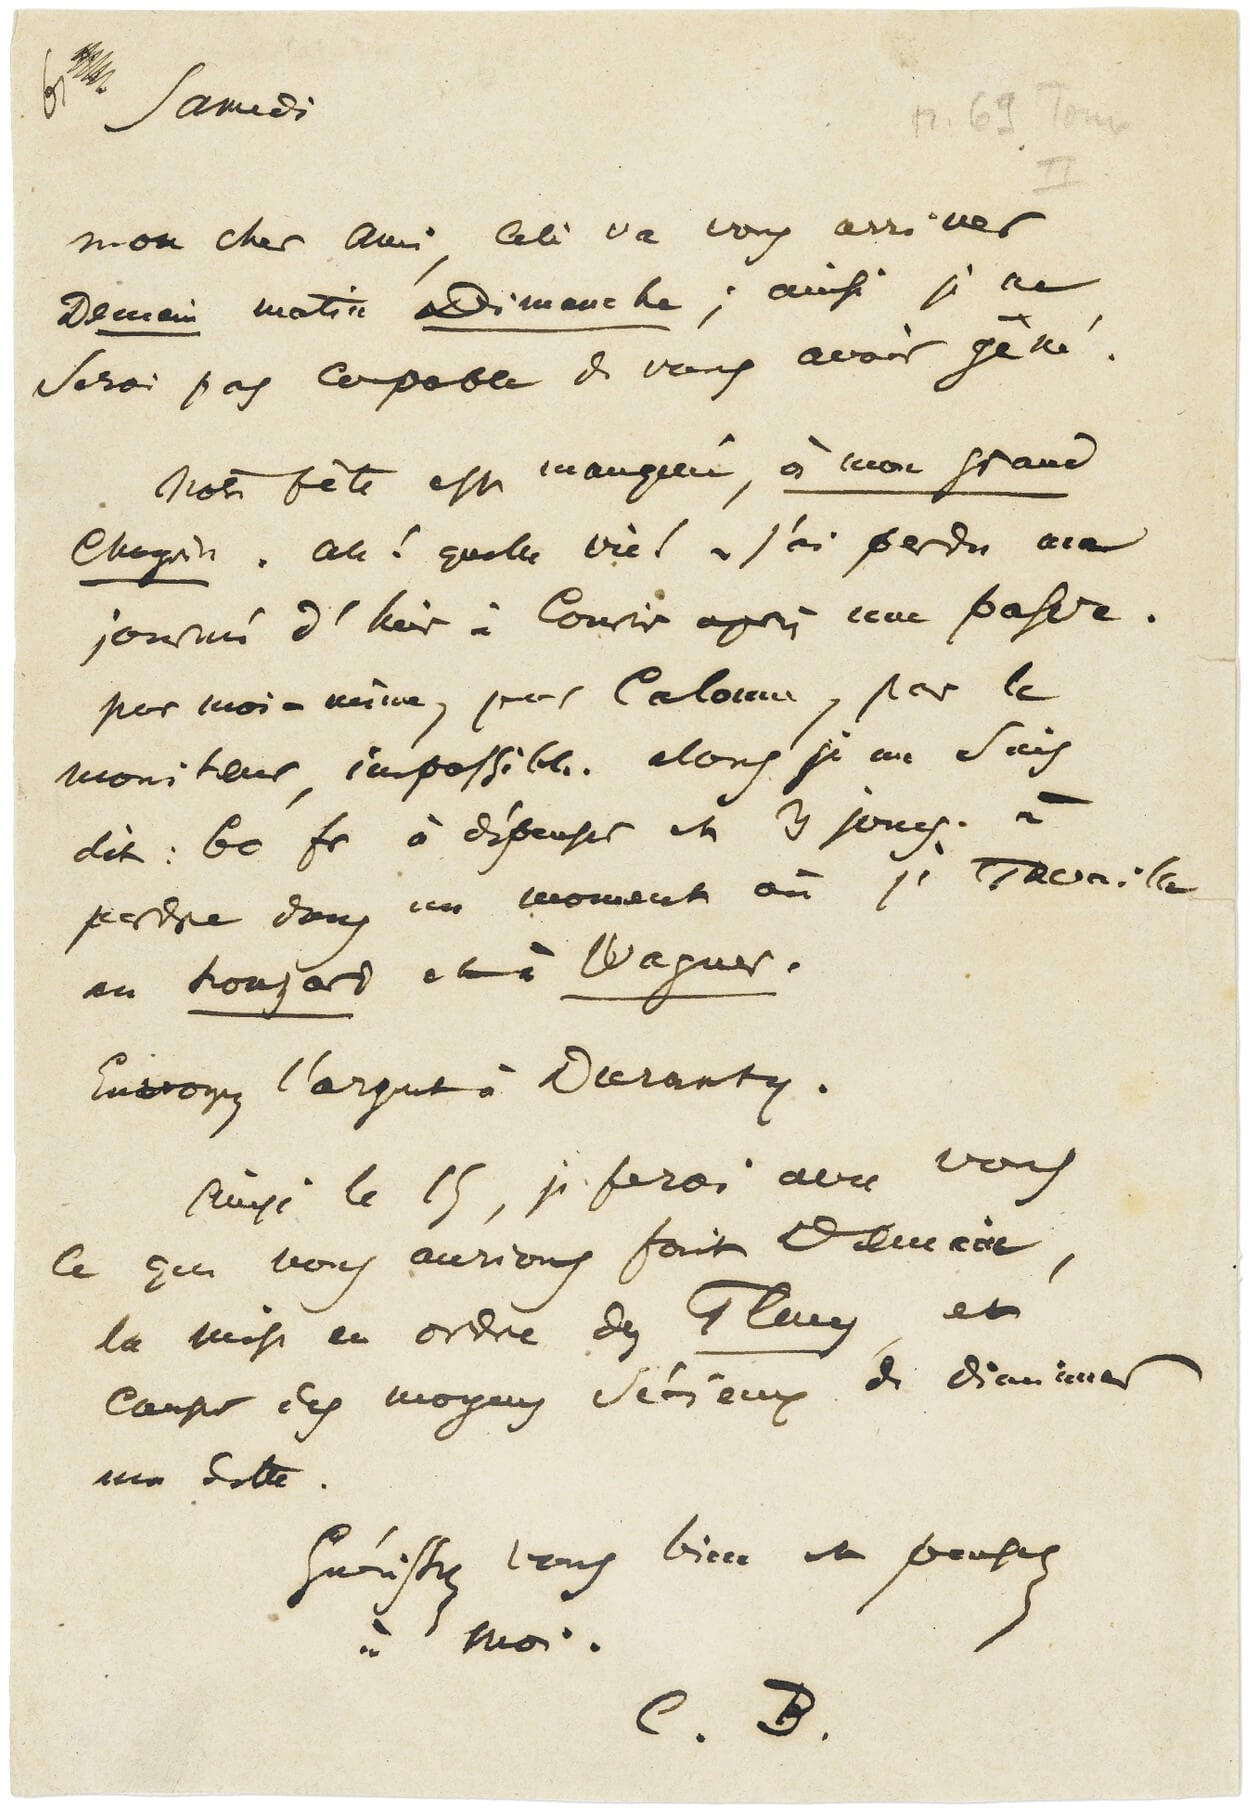 Samedi
n. 69 Tome
II
mon cher Ami, Cela va vous arriver
Demain matin Dimanche ; ainsi je ne
Serai pas Coupable de vous avoir gêné.
Notre fête est manquée, à mon grand
Chagrin. ah ! quelle vie ! J'ai perdu ma
journée d'hier à Courir après une passe.
par moi-même, par Calonne, par le
moniteur, impossible. alors je me Suis
dit : 60 fr à dépenser et 3 jours. à
perdre dans un moment où je Travaille
au houzard et à Wagner.
Envoyez l'argent à Duranty.
Ainsi le 15, je ferai avec vous
Ce que nous aurions fait Demain,
la mise en ordre des Fleurs, et
Causer des moyens Sérieux de diminuer
ma dette.
Guérissez vous bien et pensez
à moi.
C. B.